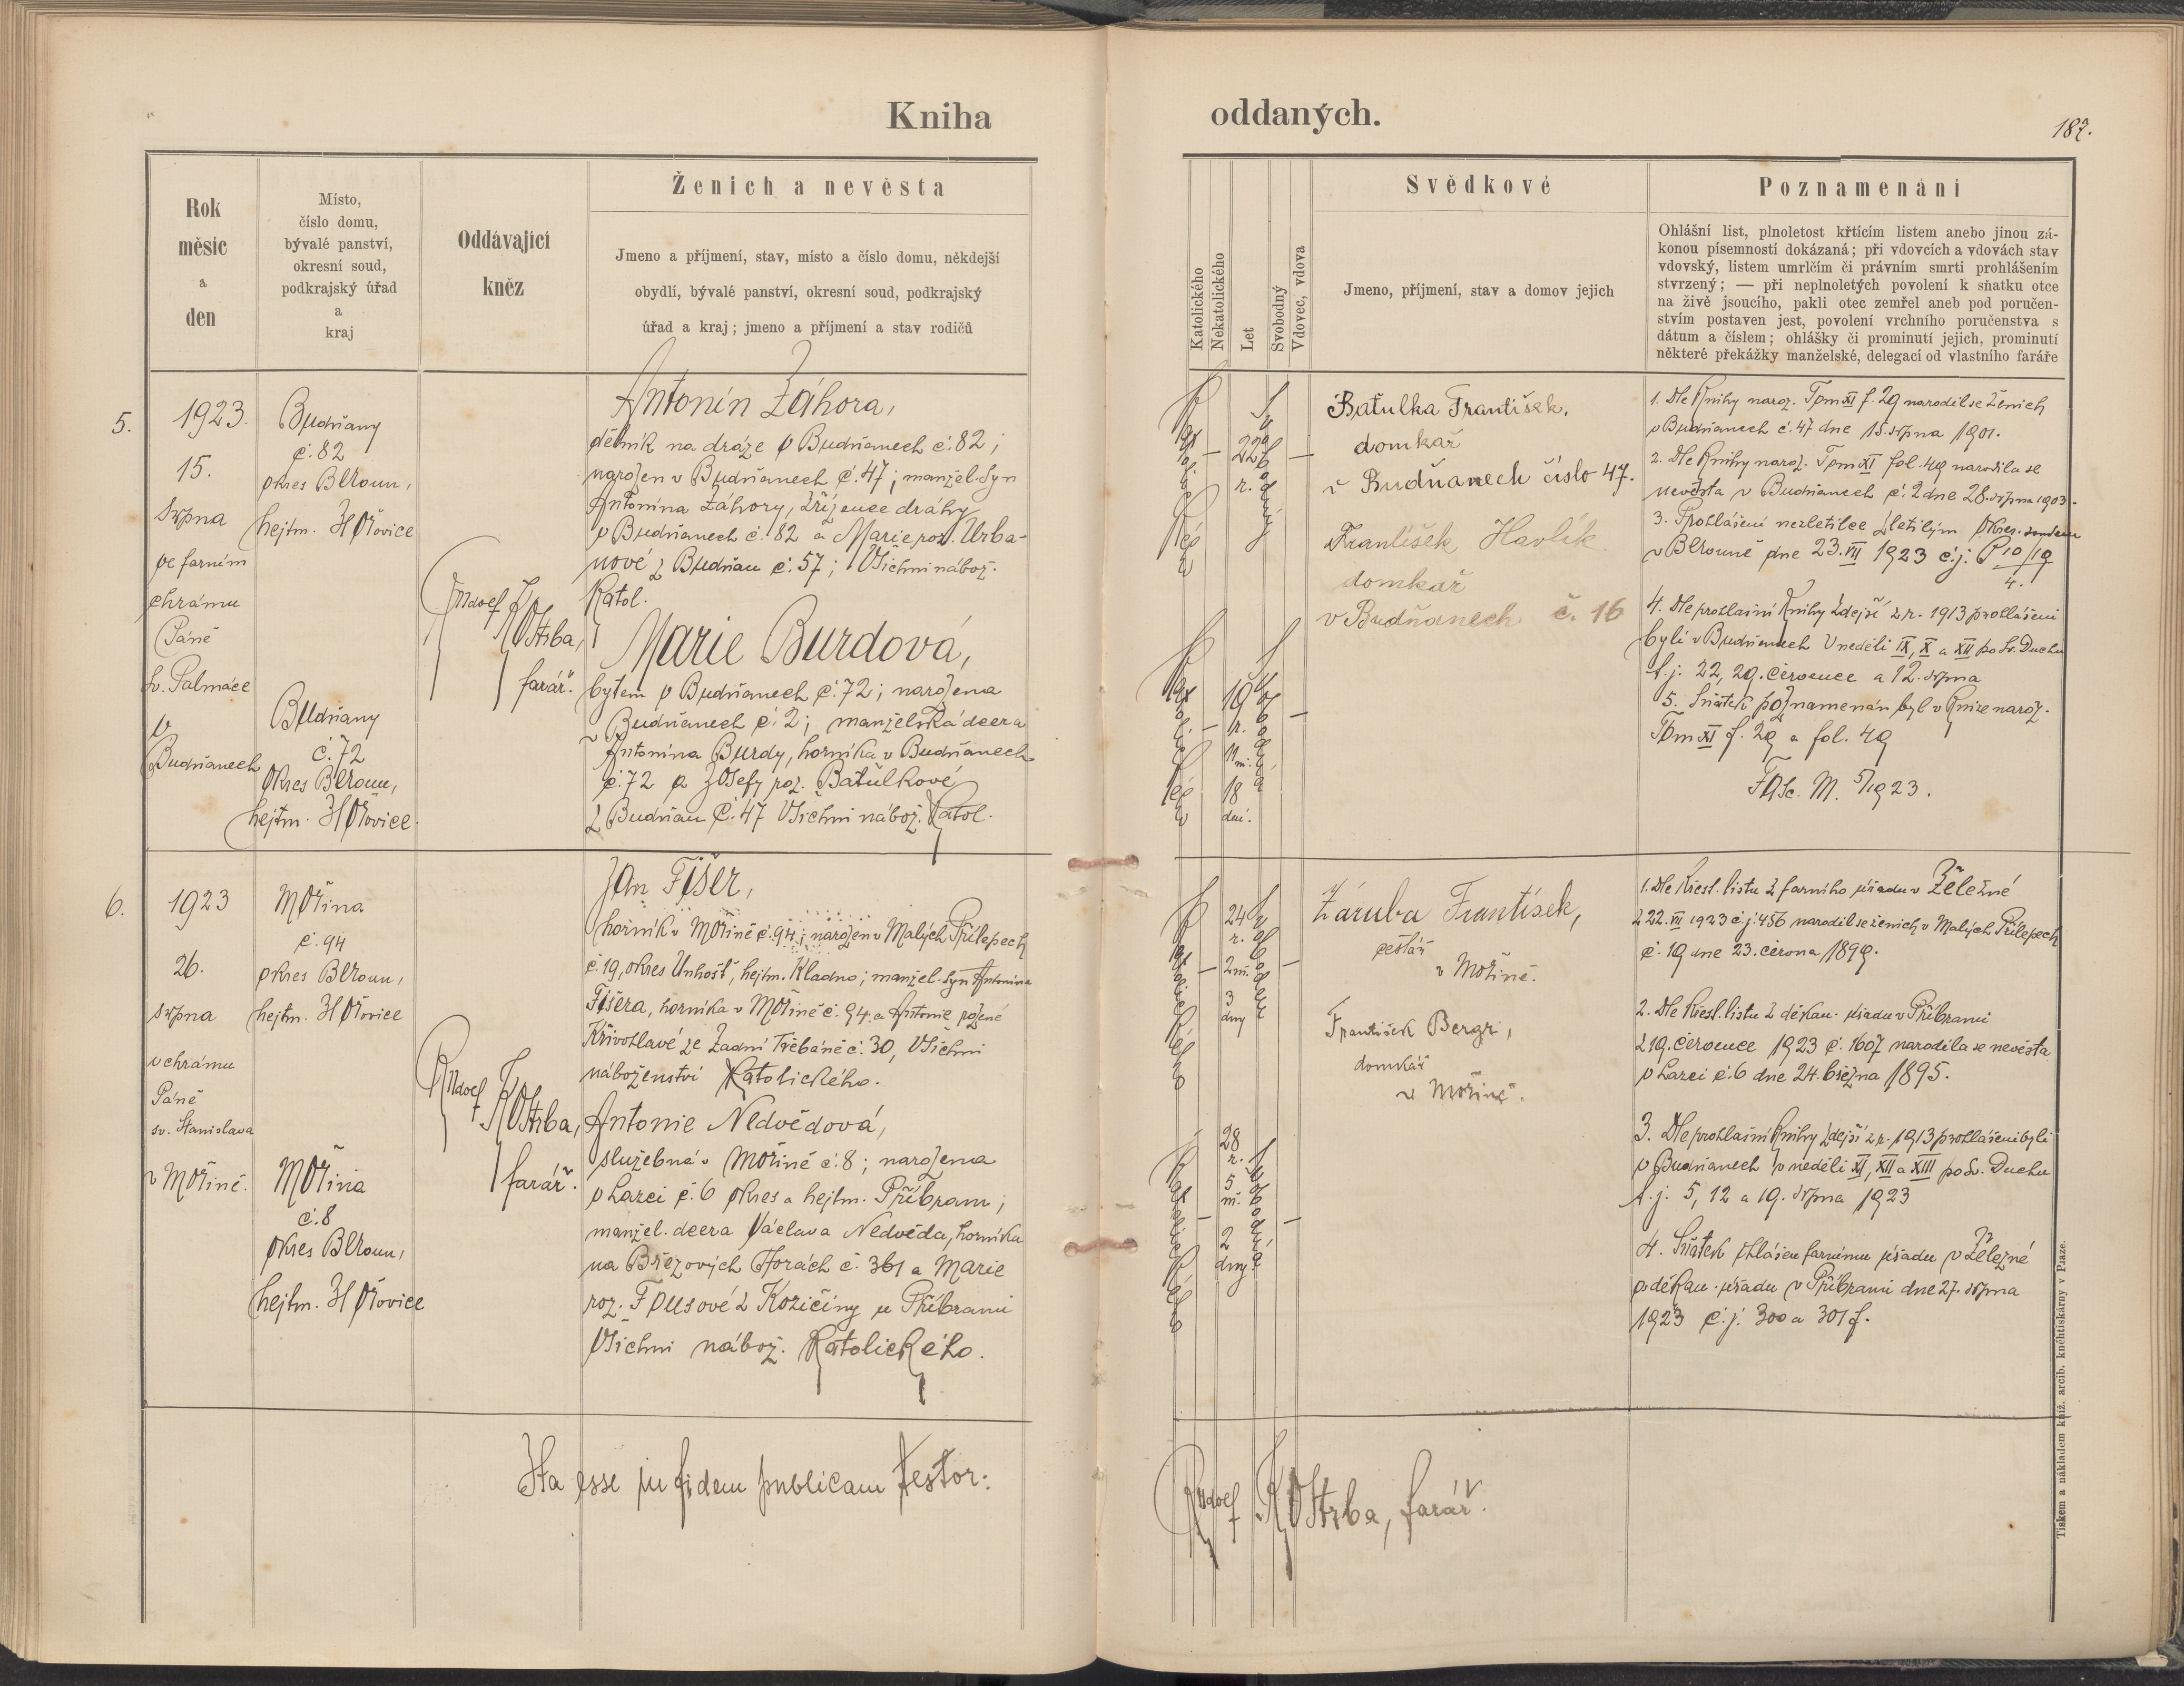 Kniha oddaných.
187.
Rok
měsíc
a
den
Místo,
číslo domu,
bývalé panství,
okresní soud,
podkrajský úřad
a
kraj
Oddávající
kněz
Ženich a nevěsta
Jmeno a příjmení, stav, místo a číslo domu, někdejší
obydlí, bývalé panství, okresní soud, podkrajský
úřad a kraj; jmeno a příjmení a stav rodičů
Katolického
Nekatolického
Let
Svobodný
Vdovec, vdova
Svědkové
Jmeno, příjmení, stav a domov jejich
Poznamenání
Ohlášní list, plnoletost křtícím listem anebo jinou zá-
konou písemností dokázaná; při vdovcích a vdovách stav
vdovský, listem umrlčím či právním smrti prohlášením
stvrzený; — při neplnoletých povolení k sňatku otce
na živě jsoucího, pakli otec zemřel aneb pod poručen-
stvím postaven jest, povolení vrchního poručenstva s
dátum a číslem; ohlášky či prominutí jejich, prominutí
některé překážky manželské, delegací od vlastního faráře
5.
1923.
15.
srpna
ve farním
chrámu
Páně
sv. Palmáce
v
Budňanech
Budňany
č. 82
okres Beroun,
hejtm. Hořovice
Budňany
č. 72
okres Beroun,
hejtm. Hořovice.
Kostrba,
farář.
Antonín Záhora,
dělník na dráze v Budňanech č. 82;
narozen v Budňanech č. 47; manžel. syn
Antonína Záhory, zřízence dráhy
v Budňanech č. 82 a Marie roz. Urba-
nové z Budňan č. 57; Všichni nábož.
Katol.
Marie Burdová,
bytem v Budňanech č. 72; narozena
v Budňanech č. 2; manželská dcera
Antonína Burdy, horníka v Budňanech
č. 72 a Josefy roz. Baťulkové
z Budňan č. 47 Všichni nábož. Katol.
Katolické
22 r.
Svobodný
Katolické
19 r.
11 m.
18 dní.
Svobodná
Baťulka František,
domkař
v Budňanech číslo 47.
František Havlík
domkař
v Budňanech č. 16
1. Dle Knihy naroz. Tom XI f. 29 narodil se ženich
v Budňanech č. 47 dne 15. srpna 1901.
2. Dle Knihy naroz. Tom XI fol. 49 narodila se
nevěsta v Budňanech č. 2 dne 28. srpna 1903.
3. Prohlášení nezletilce zletilým okres. soudem
v Berouně dne 23. VII 1923 č. j. P 10/19
4.
4. Dle prohlašní Knihy zdejší z r. 1913 prohlášeni
byli v Budňanech v neděli IX, X a XII po sv. Duchu
t. j. 22, 29. července a 12. srpna
5. Sňatek poznamenán byl v Knize naroz.
Tom XI f. 29 a fol. 49
Fasc. M. 5/1923.
6.
1923
26.
srpna
v chrámu
Páně
sv. Stanislava
v Mořině.
Mořina
č. 94
okres Beroun,
hejtm. Hořovice
Mořina
č. 8
okres Beroun,
hejtm. Hořovice
Kostrba,
farář.
Jan Fišer,
horník v Mořině č. 94; narozen v Malých Přílepech
č. 19, okres Unhošť, hejtm. Kladno; manžel. syn Antonína
Fišera, horníka v Mořině č. 94 a Antonie rozené
Křivohlavé ze Zadní Třebáně č. 30, Všichni
náboženství Katolického.
Antonie Nedvědová,
služebná v Mořině č. 8; narozena
v Lazci č. 6 okres a hejtm. Příbram;
manžel. dcera Václava Nedvěda, horníka
na Březových Horách č. 361 a Marie
roz. Fousové z Kozičiny u Příbrami
Všichni nábož. Katolického.
Katolické
24 r.
2 m.
3 dny
Svobodný
Katolické
28 r.
5 m.
2 dny
Svobodná
Záruba František,
cestář
v Mořině.
František Bergr,
domkář
v Mořině.
1. Dle Křest. listu z farního úřadu v Železné
z 22. VII 1923 č. j. 456 narodil se ženich v Malých Přílepech
č. 19 dne 23. června 1899.
2. Dle Křest. listu z děkan. úřadu v Příbrami
z 19. července 1923 č. 1607 narodila se nevěsta
v Lazci č. 6 dne 24. března 1895.
3. Dle prohlašní Knihy zdejší z r. 1913 prohlášeni byli
v Budňanech v neděli XI, XII a XIII po sv. Duchu
t. j. 5, 12 a 19. srpna 1923
4. Sňatek ohlášen farnímu úřadu v Železné
a děkan. úřadu v Příbrami dne 27. srpna
1923 č. j. 300 a 301 f.
Ita esse in fidem publicam testor:
Kostrba, farář.
Tiskem a nákladem kníž. arcib. knihtiskárny v Praze.